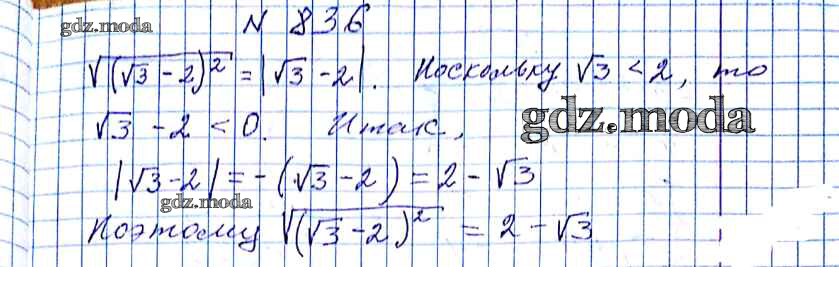 gdz.moda
N 836
√(√3 - 2)² = |√3 - 2|. Поскольку √3 < 2, то
√3 - 2 < 0. Итак,
gdz.moda
|√3 - 2| = - (√3 - 2) = 2 - √3
gdz.moda
Поэтому √(√3 - 2)² = 2 - √3